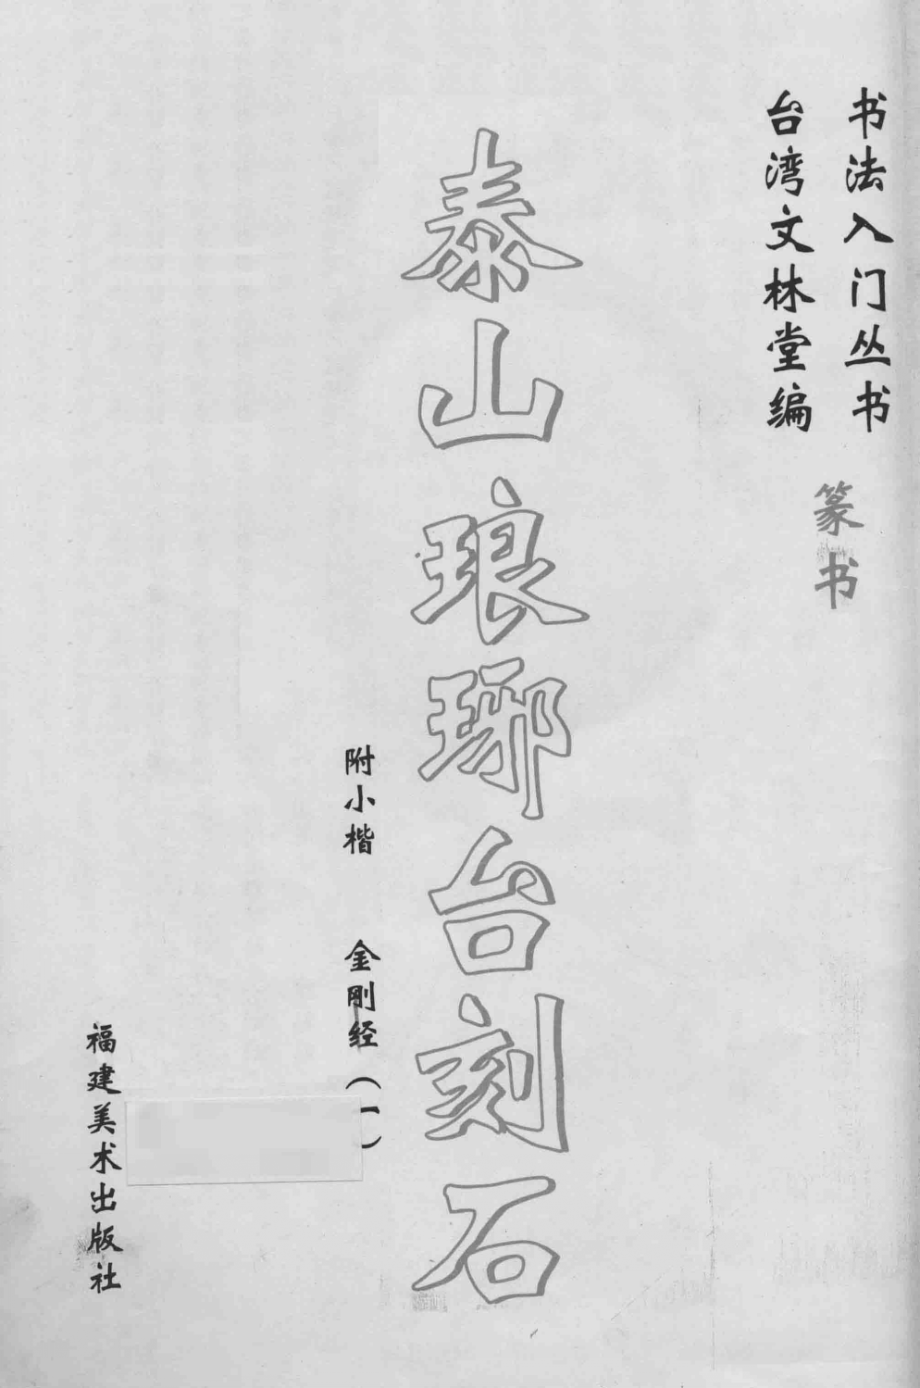 书法入门丛书
台湾文林堂编
篆书
泰山琅琊台刻石
附小楷 金刚经（一）
福建美术出版社